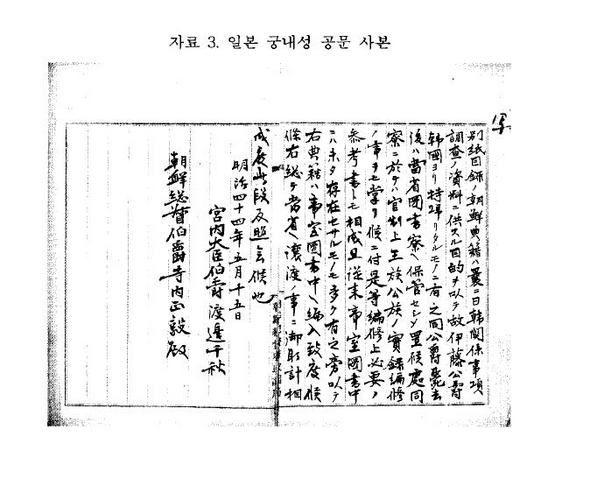 자료 3. 일본 궁내성 공문 사본
別紙目録ノ朝鮮典籍ハ曩ニ日韓関係事項
調査ノ資料ニ供スル目的ヲ以テ故伊藤公爵
韓国ヨリ持帰リタルモノニ有之同公爵薨去
後ハ当省図書寮ニ保管セシメ置候處同
寮ニ於テハ官制上王族公族ノ實録編修
ノ事ヲモ掌リ候ニ付是等編修上必要ノ
参考書ニモ相成且従来帝室図書中
ニハ未タ存在セサルモノモ多ク有之旁以テ
右典籍ハ帝室図書中ヘ編入致度候
條右総テ当省ヘ譲渡ノ事ニ御取計相
成度此段及照会候也
明治四十四年五月十五日
宮内大臣伯爵渡邊千秋
朝鮮総督伯爵寺内正毅殿